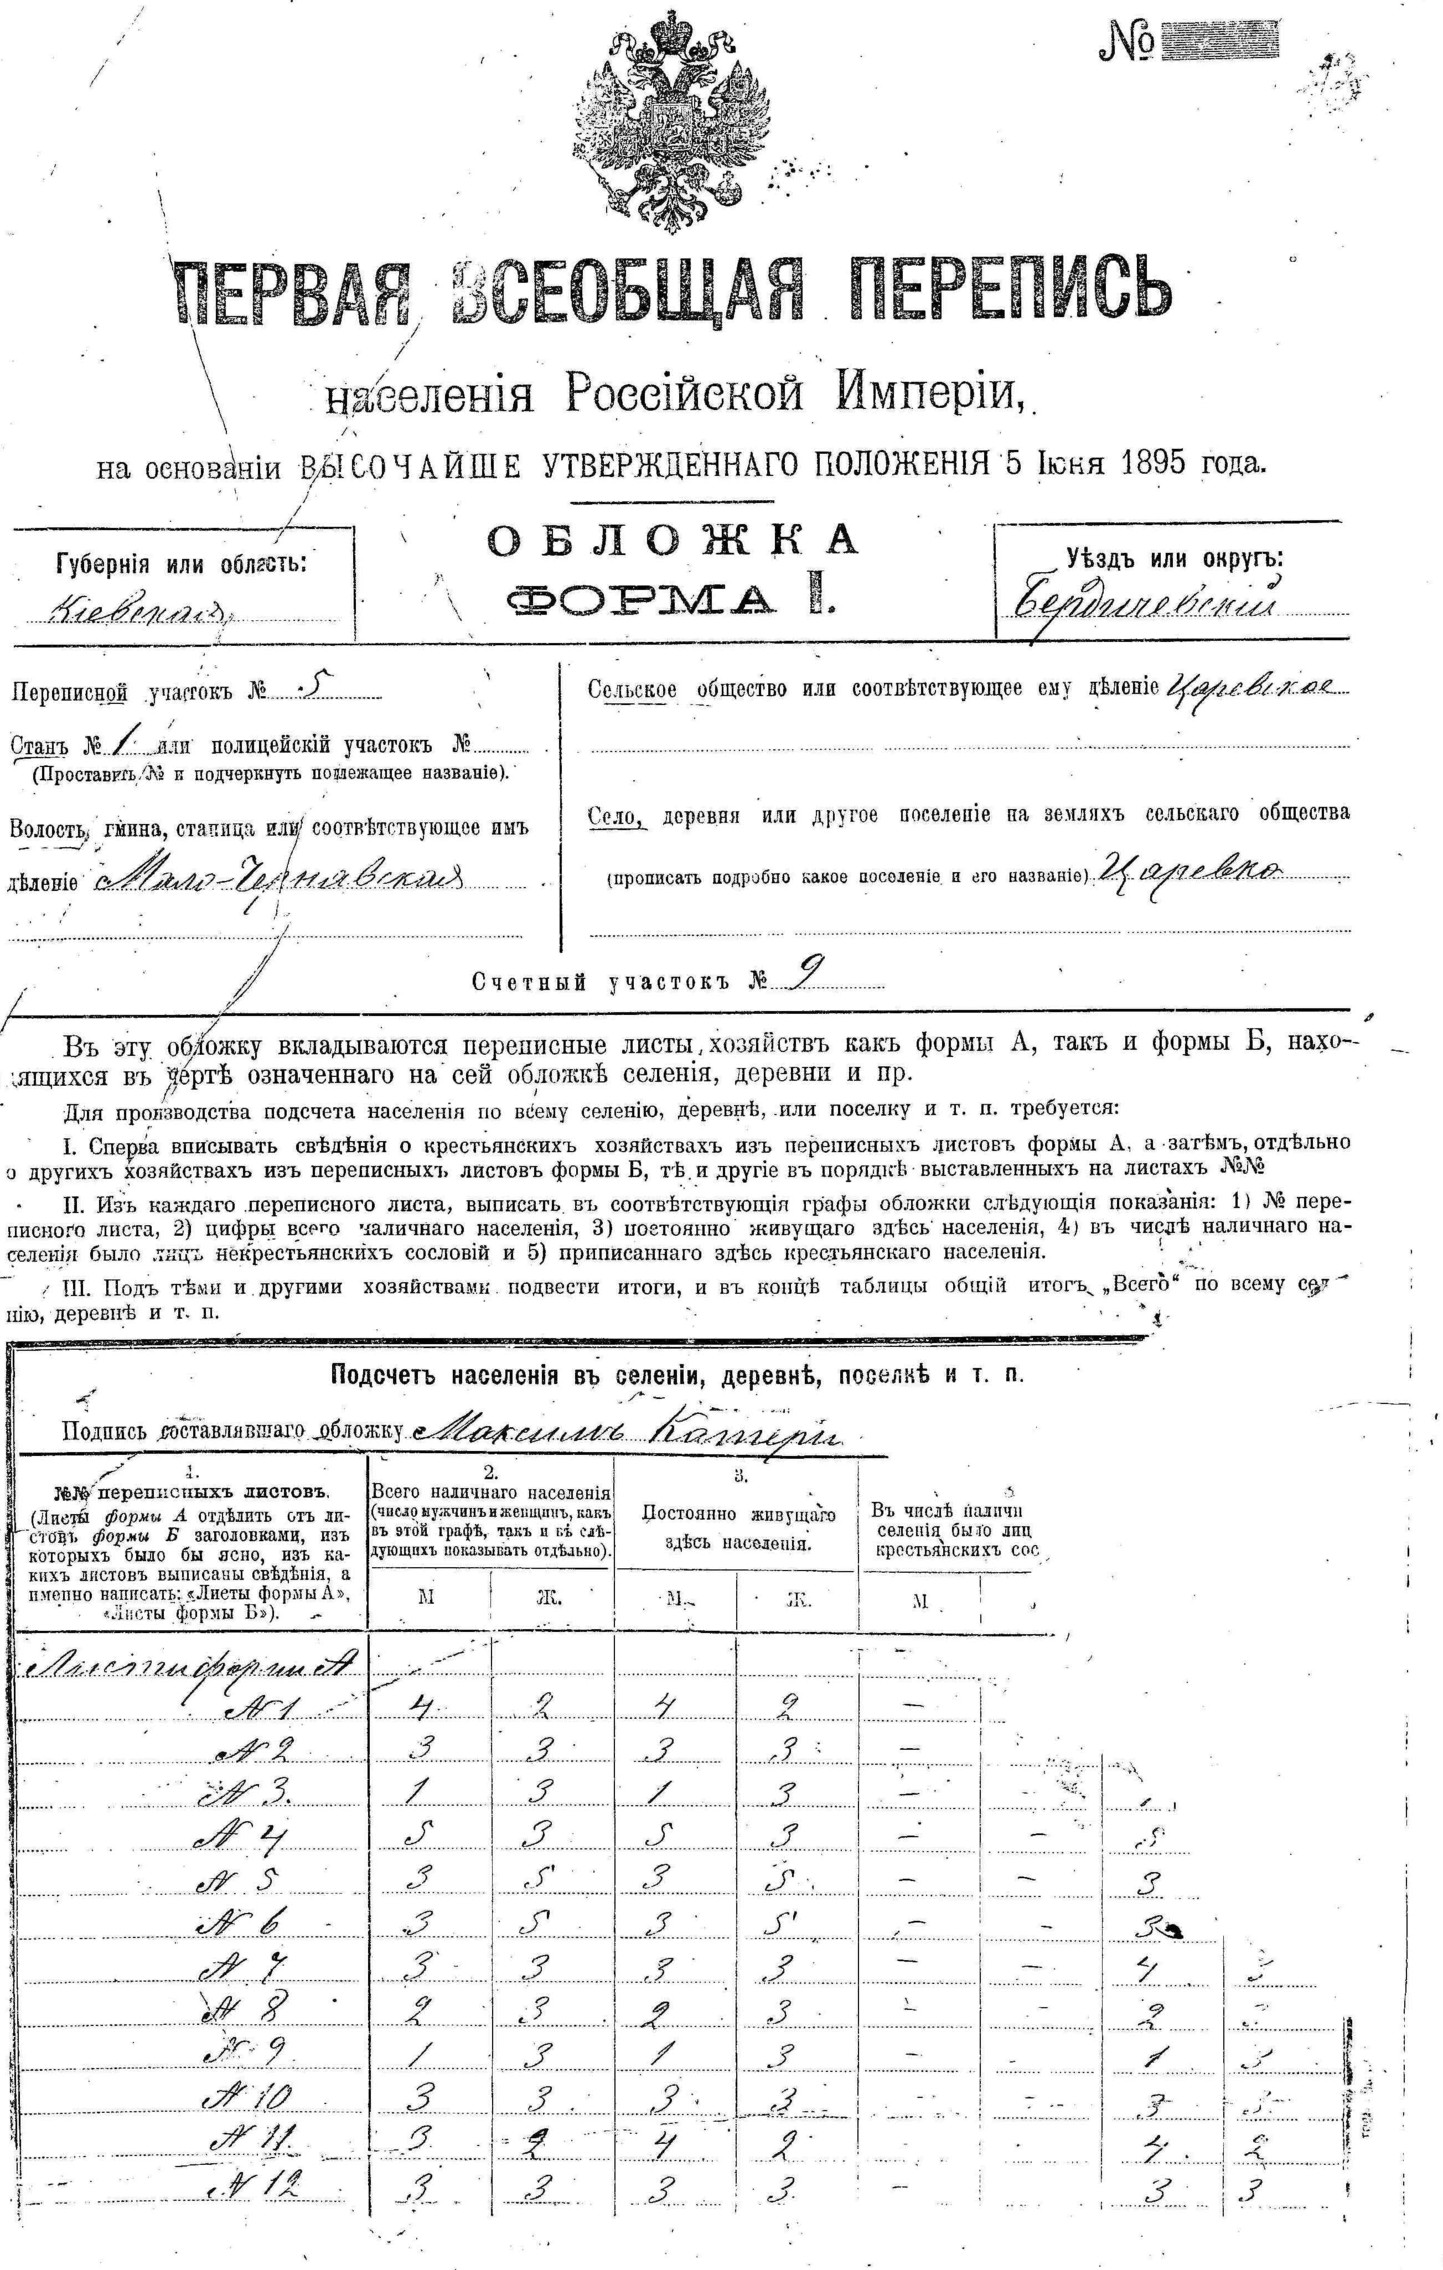 №
ПЕРВАЯ ВСЕОБЩАЯ ПЕРЕПИСЬ
населенія Россійской Имперіи,
на основаніи ВЫСОЧАЙШЕ УТВЕРЖДЕННАГО ПОЛОЖЕНІЯ 5 Іюня 1895 года.
ОБЛОЖКА
ФОРМА I.
Губернія или область:
Кіевская
Уѣздъ или округъ:
Бердичевскій
Переписной участокъ № 5
Станъ № 1 или полицейскій участокъ №
(Проставить № и подчеркнуть подлежащее названіе).
Волость, гмина, станица или соотвѣтствующее имъ
дѣленіе Мало-Чернявская
Сельское общество или соотвѣтствующее ему дѣленіе Царевское
Село, деревня или другое поселеніе на земляхъ сельскаго общества
(прописать подробно какое поселеніе и его названіе) Царевка
Счетный участокъ № 9
Въ эту обложку вкладываются переписные листы хозяйствъ какъ формы А, такъ и формы Б, нахо-
ящихся въ чертѣ означеннаго на сей обложкѣ селенія, деревни и пр.
Для производства подсчета населенія по всему селенію, деревнѣ, или поселку и т. п. требуется:
I. Сперва вписывать свѣдѣнія о крестьянскихъ хозяйствахъ изъ переписныхъ листовъ формы А, а затѣмъ, отдѣльно
о другихъ хозяйствахъ изъ переписныхъ листовъ формы Б, тѣ и другіе въ порядкѣ выставленныхъ на листахъ №№
II. Изъ каждаго переписного листа, выписать въ соотвѣтствующія графы обложки слѣдующія показанія: 1) № пере-
писного листа, 2) цифры всего наличнаго населенія, 3) постоянно живущаго здѣсь населенія, 4) въ числѣ наличнаго на-
селенія было лицъ некрестьянскихъ сословій и 5) приписаннаго здѣсь крестьянскаго населенія.
III. Подъ тѣми и другими хозяйствами подвести итоги, и въ концѣ таблицы общій итогъ „Всего“ по всему сел
нію, деревнѣ и т. п.
Подсчетъ населенія въ селеніи, деревнѣ, поселкѣ и т. п.
Подпись составлявшаго обложку Максимъ
1.
№№ переписныхъ листовъ.
(Листы формы А отдѣлить отъ ли-
стовъ формы Б заголовками, изъ
которыхъ было бы ясно, изъ ка-
кихъ листовъ выписаны свѣдѣнія, а
именно написать: «Листы формы А»,
«Листы формы Б»).
2.
Всего наличнаго населенія
(число мужчинъ и женщинъ, какъ
въ этой графѣ, такъ и въ слѣ-
дующихъ показывать отдѣльно).
М Ж.
3.
Постоянно живущаго
здѣсь населенія.
М. Ж.
Въ числѣ наличн
селенія было лиц
крестьянскихъ сос
М
Листы формы А
№ 1 4 2 4 2 –
№ 2 3 3 3 3 –
№ 3. 1 3 1 3 – –
№ 4 5 3 5 3 – – 5
№ 5 3 5 3 5 – – 3
№ 6 3 5 3 5 – – 3
№ 7 3 3 3 3 – – 4
№ 8 2 3 2 3 – – 2
№ 9 1 3 1 3 – – 1 3
№ 10 3 3 3 3 – – 3
№ 11. 3 2 4 2 – – 4 2
№ 12 3 3 3 3 – 3 3